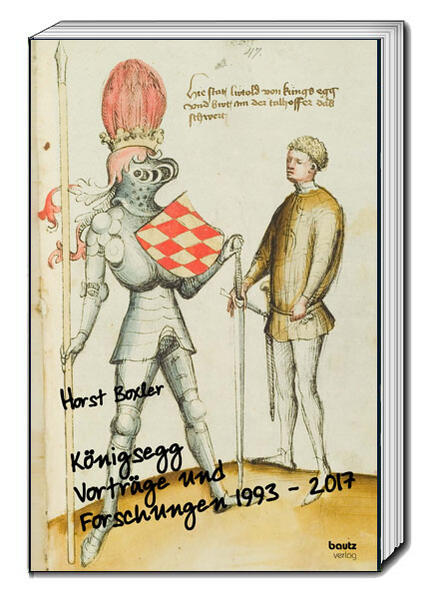 47.
hie statt lutold von küngs egg
vnd bút im der talhoffer das
schwert
Horst Boxler
Königsegg
Vorträge und
Forschungen 1993 – 2017
bautz
verlag